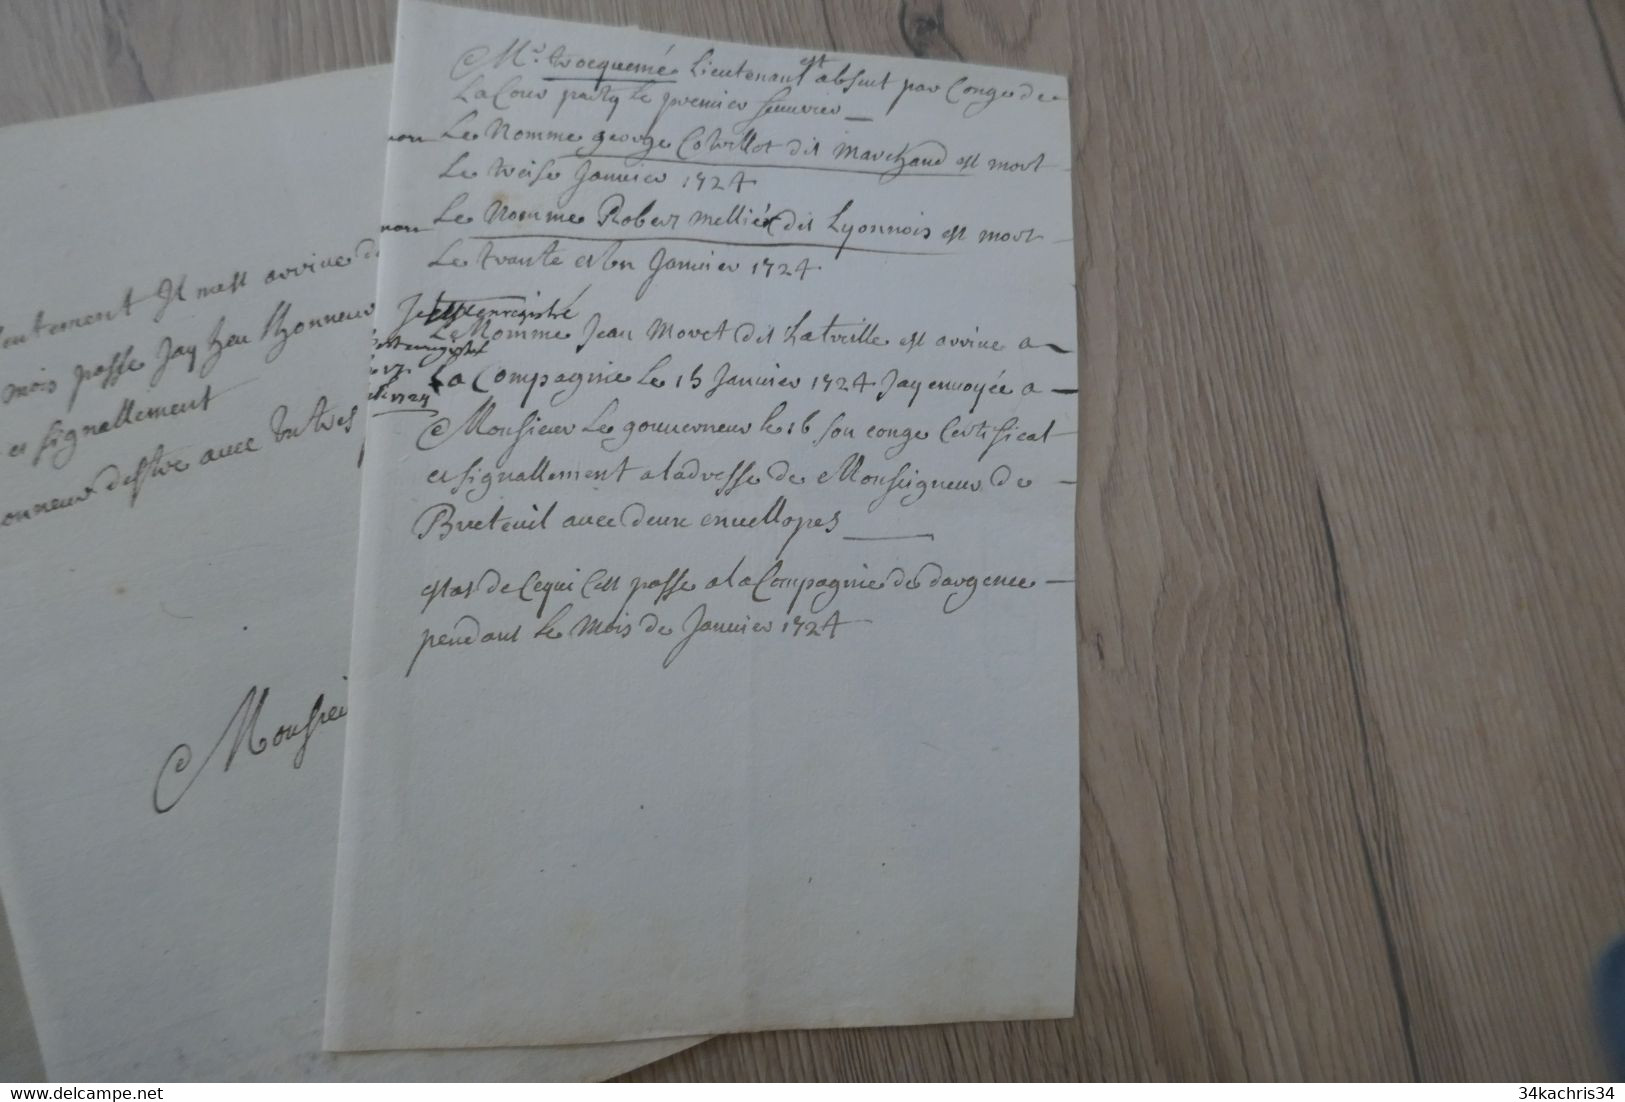 Mr tocquemé Lieutenant est absent par Conge de
La Cour party le premier feuvrier
mort Le Nomme george Cotvillot dit Marchand est mort
Le treise Janvier 1724
mort Le Nomme Robert mellié dit Lyonnois est mort
Le trante et un Janvier 1724
enregistré
Le Nomme Jean Moret dit Latreille est arrive a
La Compagnie Le 15 Janvier 1724 Jay envoyée a
Monsieur Le gouverneur le 16 son conge Certificat
et signallement a ladresse de Monseigneur de
Breteuil avec deux envellopes
estat de Cequi Cest passe a la Compagnie de dargence
pendant Le Mois de Janvier 1724
entement Il mest arrive
mois passe Jay heu lhonneur
et signallement
onneur destre avec
Monsieu
34kachris34